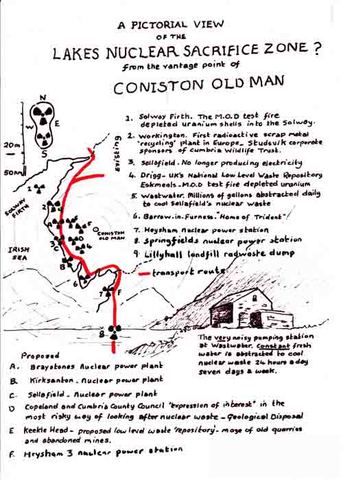 A PICTORIAL VIEW
OF THE
LAKES NUCLEAR SACRIFICE ZONE?
From the vantage point of
CONISTON OLD MAN
N
W
E
S
20m
50m
SOLWAY FIRTH
IRISH SEA
existing
1. Solway Firth. The M.O.D test fire
depleted uranium shells into the Solway.
2. Workington. First radioactive scrap metal
'recycling' plant in Europe - Studsvik corporate
sponsors of Cumbria Wildlife Trust.
3. Sellafield - No longer producing electricity
4. Drigg - UK's National Low Level Waste Repository
Eskmeals - M.O.D test fire depleted uranium
5. Wastwater. Millions of gallons abstracted daily
to cool sellafield's nuclear waste
6. Barrow-in-Furness "Home of Trident"
7. Heysham nuclear power station
8. Springfields nuclear power station
9. Lillyhall landfill radwaste dump
transport route
CONISTON
OLD MAN
The very noisy pumping station
at Wastwater. Constant fresh
water is abstracted to cool
nuclear waste 24 hours a day
seven days a week.
Proposed
A. Braystones Nuclear power plant
B. Kirksanton - Nuclear power plant
C. Sellafield - Nuclear power plant
D Copeland and Cumbria County Council "expression of interest" in the
most risky way of looking after nuclear waste - Geological Disposal
E Keekle Head - proposed low level waste 'repository' - maze of old quarries
and abandoned mines.
F. Heysham 3 nuclear power station